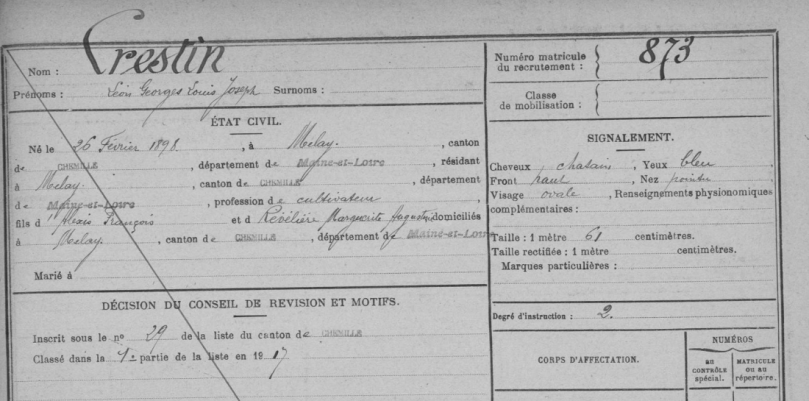 Nom : Crestin
Prénoms : Léon Georges Louis Joseph Surnoms :
Numéro matricule du recrutement : 873
Classe de mobilisation :
ÉTAT CIVIL.
Né le 26 Février 1898, à Melay, canton
de CHEMILLE, département de Maine-et-Loire, résidant
à Melay, canton de CHEMILLE, département
de Maine-et-Loire, profession de cultivateur,
fils d'Alexis François et de Révélière Marguerite domiciliés
à Melay, canton de CHEMILLE, département de Maine-et-Loire
Marié à
SIGNALEMENT.
Cheveux chatain, Yeux bleu
Front haut, Nez pointu
Visage ovale, Renseignements physionomiques
complémentaires :
Taille : 1 mètre 61 centimètres.
Taille rectifiée : 1 mètre centimètres.
Marques particulières :
DÉCISION DU CONSEIL DE REVISION ET MOTIFS.
Inscrit sous le no 29 de la liste du canton de CHEMILLE
Classé dans la 1e partie de la liste en 1917
Degré d'instruction : 2.
CORPS D'AFFECTATION.
NUMÉROS
au CONTRÔLE spécial.
MATRICULE ou au répertoire.